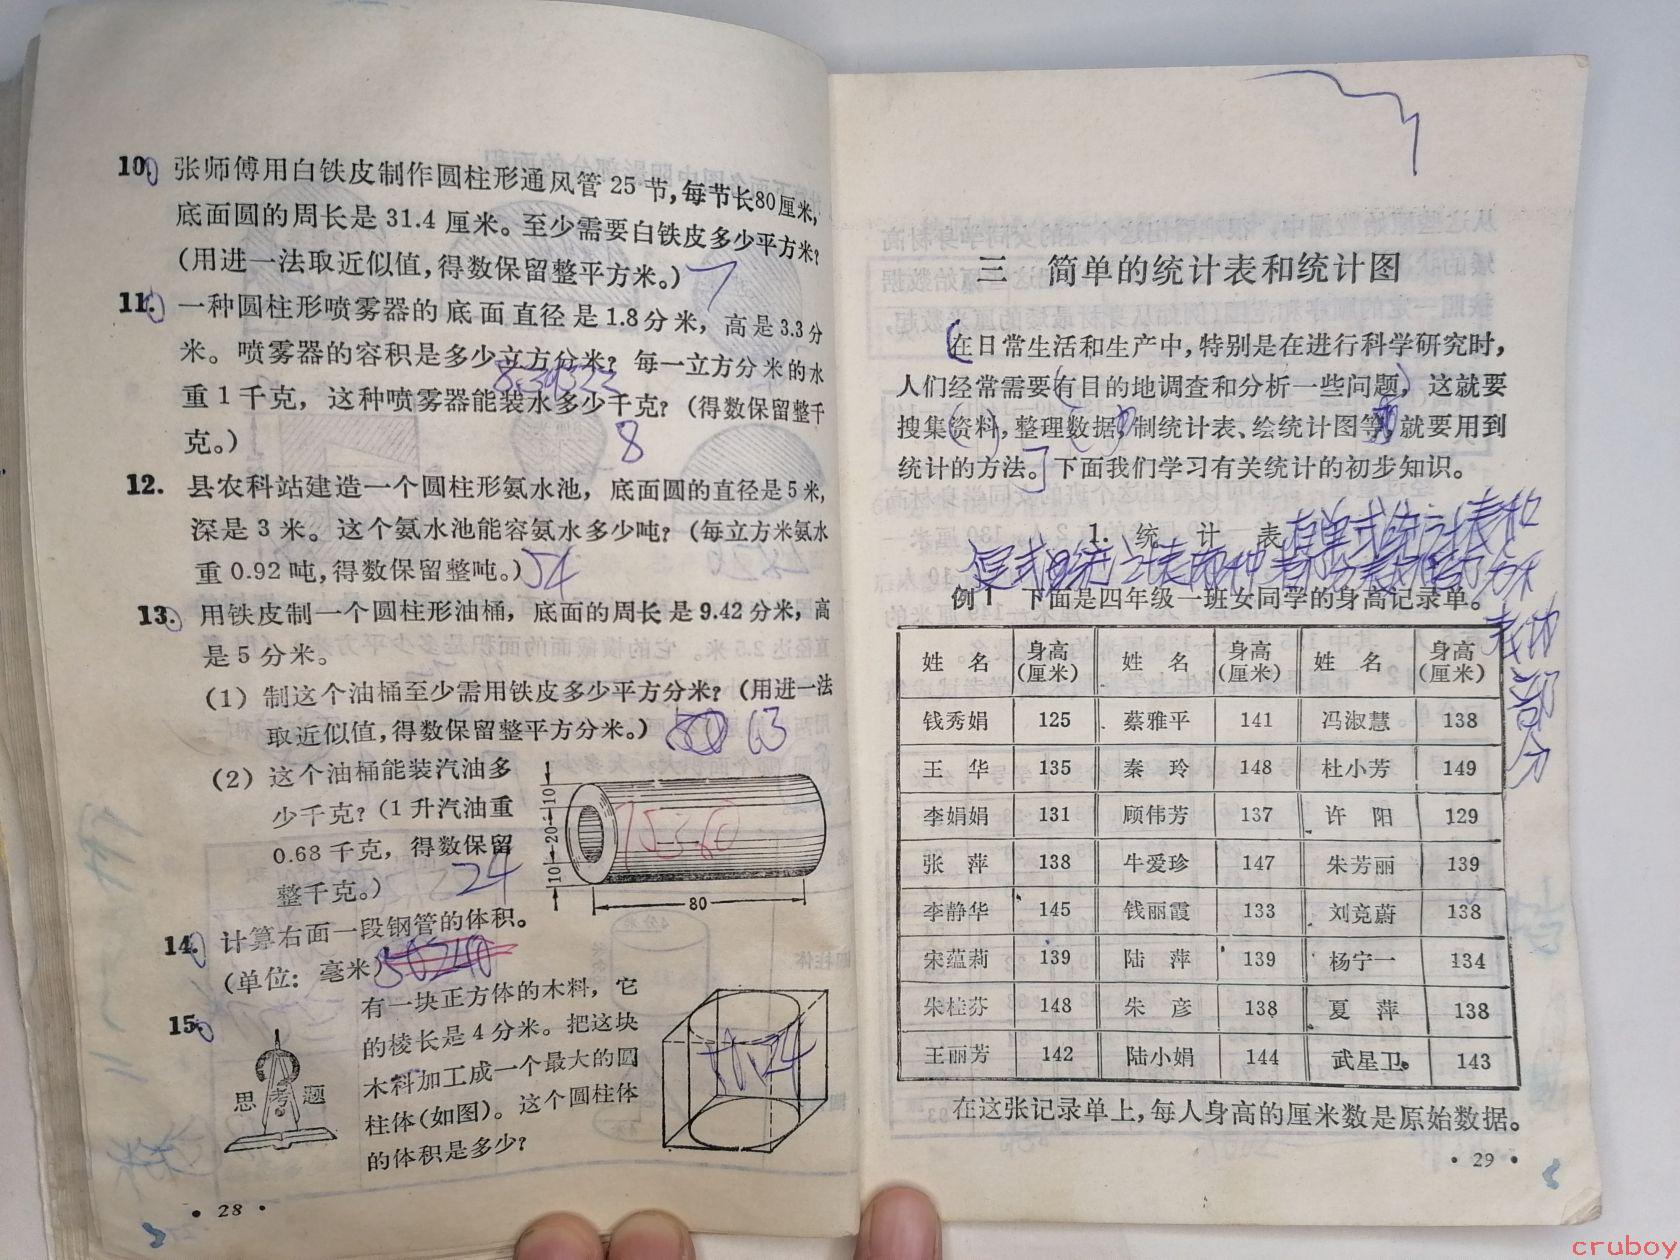 10. 张师傅用白铁皮制作圆柱形通风管 25 节,每节长80厘米,
底面圆的周长是 31.4 厘米。至少需要白铁皮多少平方米?
(用进一法取近似值,得数保留整平方米。) 7
11. 一种圆柱形喷雾器的底面直径是1.8分米, 高是3.3分
米。喷雾器的容积是多少立方分米? 每一立方分米的水
重 1 千克, 这种喷雾器能装水多少千克? (得数保留整千
克。) 8
12. 县农科站建造一个圆柱形氨水池, 底面圆的直径是 5 米,
深是 3 米。这个氨水池能容氨水多少吨? (每立方米氨水
重 0.92 吨,得数保留整吨。) 54
13. 用铁皮制一个圆柱形油桶, 底面的周长是 9.42 分米, 高
是 5 分米。
(1) 制这个油桶至少需用铁皮多少平方分米? (用进一法
取近似值,得数保留整平方分米。) 63
(2) 这个油桶能装汽油多
少千克? (1 升汽油重
0.68 千克, 得数保留
整千克。) 24
10 20 10
80
14. 计算右面一段钢管的体积。
(单位: 毫米)
15.
思考题
有一块正方体的木料, 它
的棱长是 4 分米。把这块
木料加工成一个最大的圆
柱体(如图)。这个圆柱体
的体积是多少?
• 28 •
三 简单的统计表和统计图
在日常生活和生产中,特别是在进行科学研究时,
人们经常需要有目的地调查和分析一些问题, 这就要
搜集资料,整理数据,制统计表、绘统计图等,就要用到
统计的方法。下面我们学习有关统计的初步知识。
1. 统 计 表
例 1 下面是四年级一班女同学的身高记录单。
姓 名 身高(厘米) 姓 名 身高(厘米) 姓 名 身高(厘米)
钱秀娟 125 蔡雅平 141 冯淑慧 138
王 华 135 秦 玲 148 杜小芳 149
李娟娟 131 顾伟芳 137 许 阳 129
张 萍 138 牛爱珍 147 朱芳丽 139
李静华 145 钱丽霞 133 刘竞蔚 138
宋蕴莉 139 陆 萍 139 杨宁一 134
朱桂芬 148 朱 彦 138 夏 萍 138
王丽芳 142 陆小娟 144 武星卫 143
部
分
在这张记录单上,每人身高的厘米数是原始数据。
• 29 •
cruboy